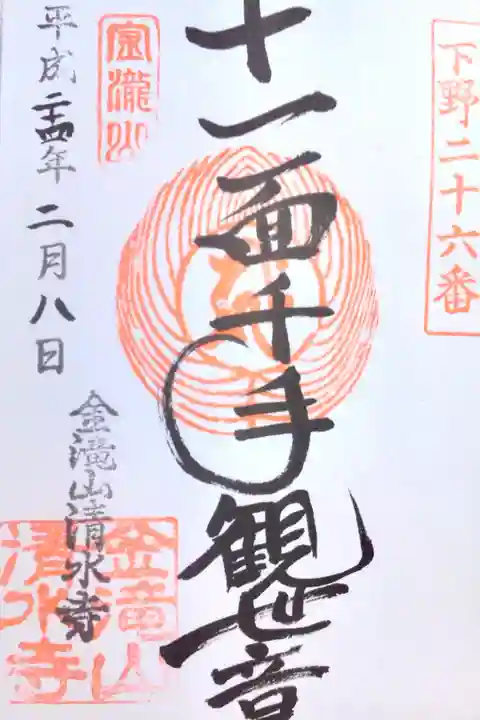 下野二十六番
十一面千手観世音
宝瀧山
平成二十四年二月八日
金滝山清水寺
金竜山
清水寺